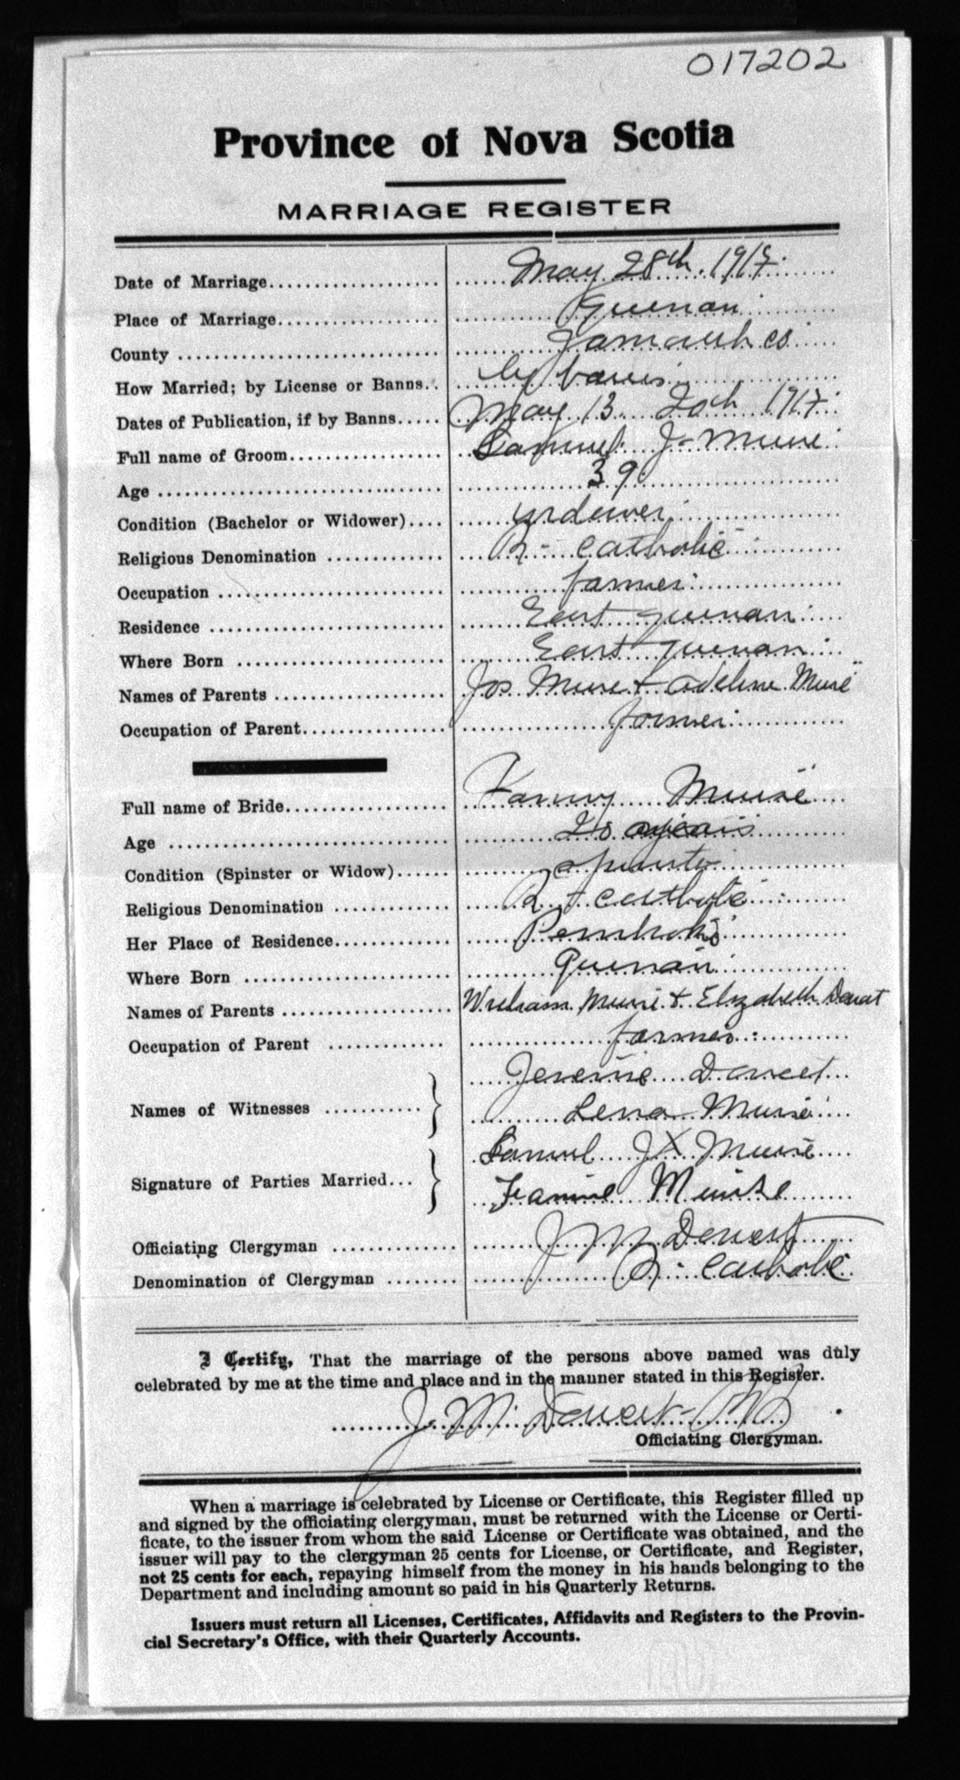 017202
Province of Nova Scotia
MARRIAGE REGISTER
Date of Marriage.................. May 28th. 1917.
Place of Marriage................. Quenan
County ........................... Yarmouth co
How Married; by License or Banns.. by banns
Dates of Publication, if by Banns..... May 13 20th 1917
Full name of Groom................ Samuel J- Muise
Age .............................. 39
Condition (Bachelor or Widower).... widower
Religious Denomination ............ R- catholic
Occupation ....................... farmer
Residence ........................ East quenan
Where Born ....................... East quenan
Names of Parents ................. Jos Muise & Adeline Muise
Occupation of Parent.............. farmer
Full name of Bride................ Fanny Muise
Age .............................. years
Condition (Spinster or Widow)...... spinster
Religious Denomination ............ R + catholic
Her Place of Residence............
Where Born ....................... Quenan
Names of Parents ................. William Muise & Elizabeth Doucet
Occupation of Parent ............. farmer
Names of Witnesses ........... } Jeremie Doucet
Lena Muise
Signature of Parties Married... } Samuel J X Muise
Fannie Muise
Officiating Clergyman ............ J M Doucet
Denomination of Clergyman ........ R- Catholic
I Certify, That the marriage of the persons above named was duly
celebrated by me at the time and place and in the manner stated in this Register.
J. M. Doucet
Officiating Clergyman.
When a marriage is celebrated by License or Certificate, this Register filled up
and signed by the officiating clergyman, must be returned with the License or Certi-
ficate, to the issuer from whom the said License or Certificate was obtained, and the
issuer will pay to the clergyman 25 cents for License, or Certificate, and Register,
not 25 cents for each, repaying himself from the money in his hands belonging to the
Department and including amount so paid in his Quarterly Returns.
Issuers must return all Licenses, Certificates, Affidavits and Registers to the Provin-
cial Secretary's Office, with their Quarterly Accounts.